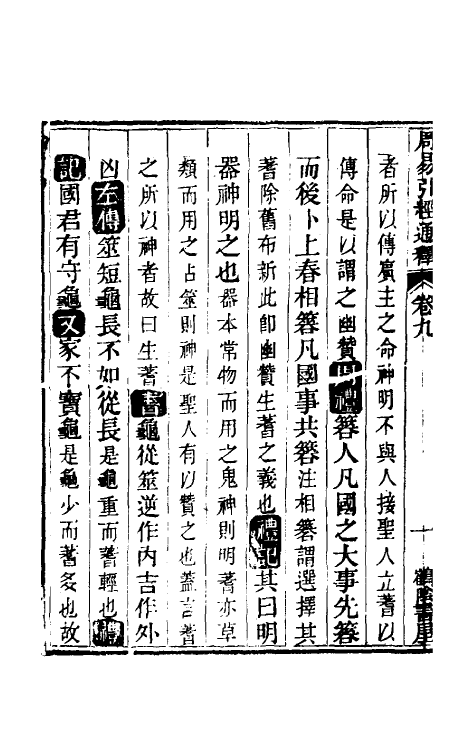 周易引經通釋 卷九 十 鶴陰書屋
者所以傳廣主之命神明不與人接聖人立蓍以
傳命是以謂之幽贊周禮簭人凡國之大事先簭
而後卜上春相簭凡國事共簭注相簭謂選擇其
蓍除舊布新此卽幽贊生蓍之義也禮記其曰明
器神明之也器本常物而用之鬼神則明蓍亦草
類而用之占筮則神是聖人有以贊之也蓋言蓍
之所以神者故曰生蓍書龜從筮逆作內吉作外
凶左傳筮短龜長不如從長是龜重而蓍輕也禮
記國君有守龜又家不寶龜是龜少而蓍多也故